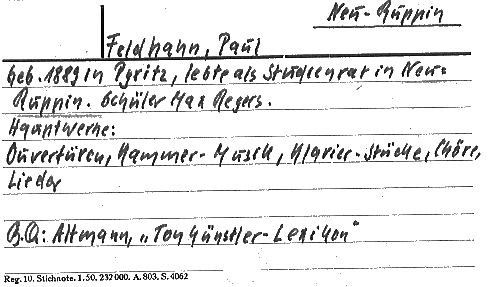 Neu-Ruppin
Feldhahn, Paul
Geb. 1889 in Pyritz, lebte als Studienrat in Neu-
Ruppin. Schüler Max Regers.
Hauptwerke:
Ouvertüren, Kammer-Musik, Klavier-Stücke, Chöre,
Lieder
B.Q: Altmann, „Tonkünstler-Lexikon"
Reg. 10. Stichnote. 1. 50. 232000. A. 803. S. 4062